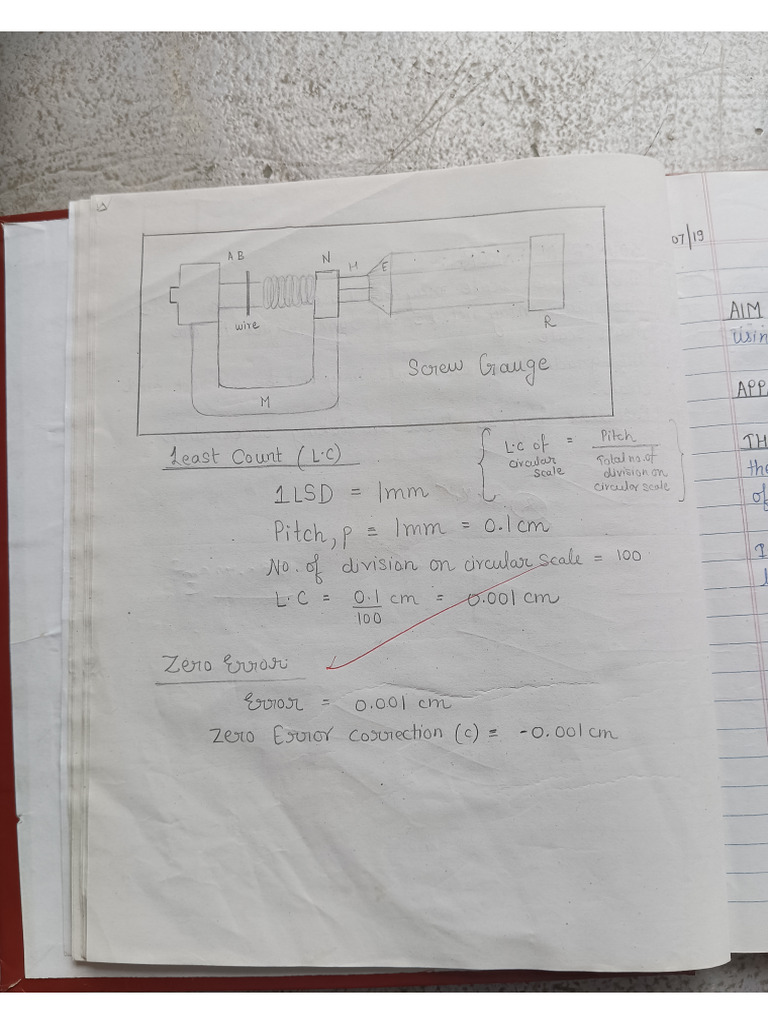 07/19
A B
N
H
E
wire
R
M
Screw Gauge
AIM
usin
APP
Least Count (L.C)
L.C of circular scale = Pitch / Total no. of division on circular scale
TH
the
of
1 LSD = 1mm
Pitch, p = 1mm = 0.1cm
No. of division on circular scale = 100
L.C = 0.1/100 cm = 0.001 cm
Zero Error
Error = 0.001 cm
Zero Error correction (c) = -0.001 cm